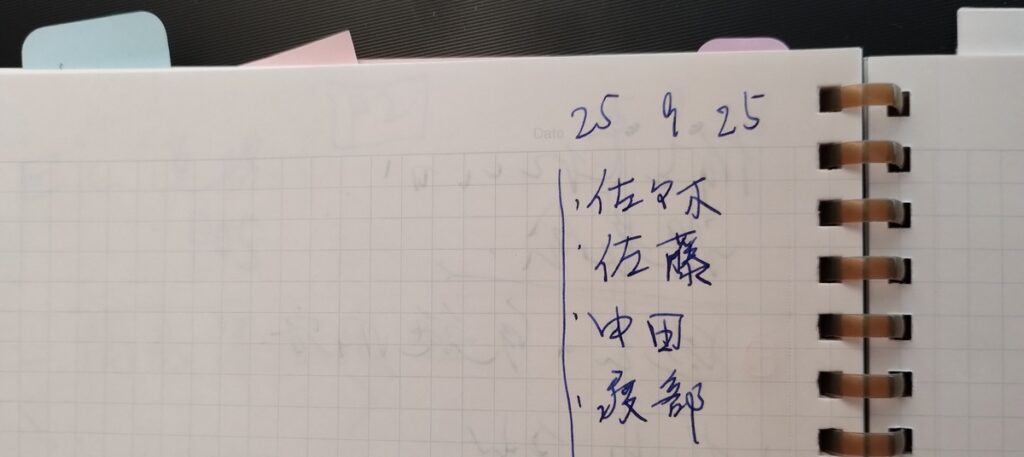 Date 25.9.25
・佐々木
・佐藤
・中田
・綾部